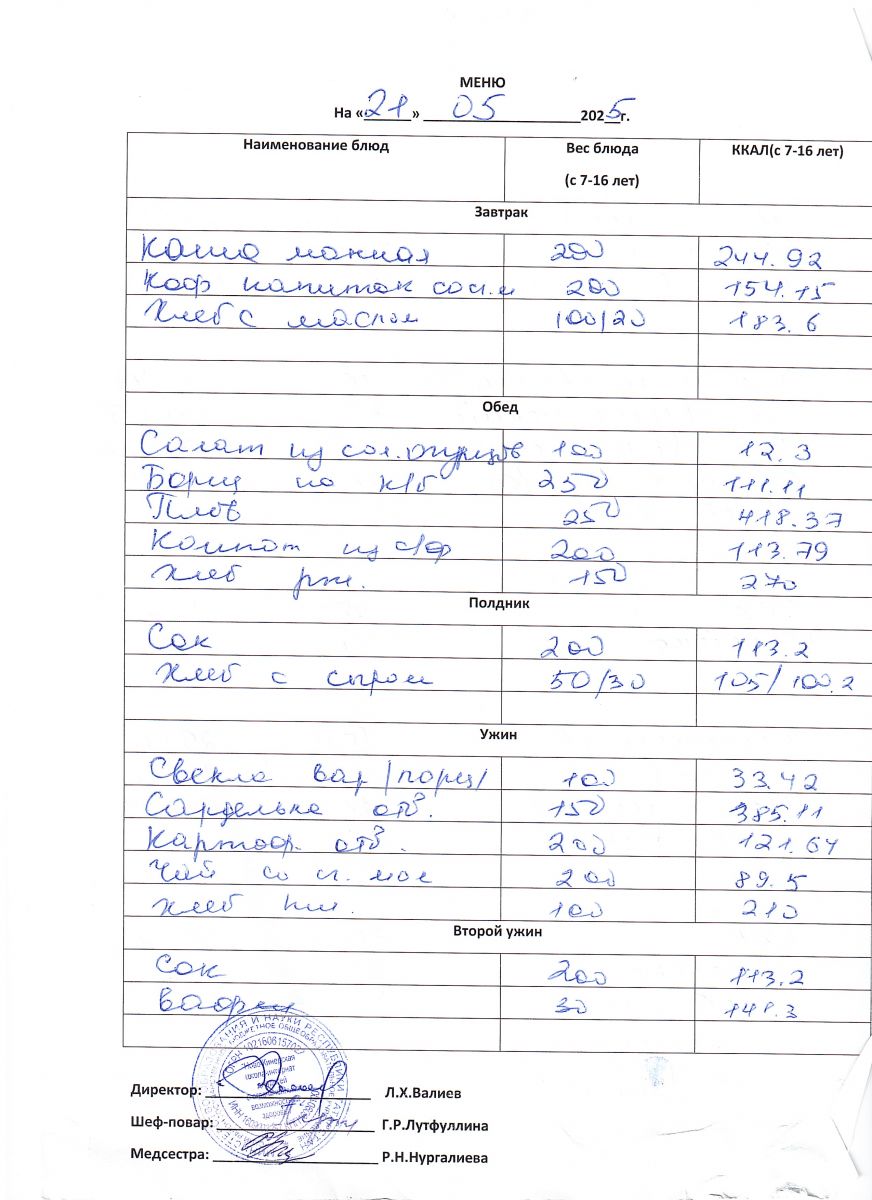 МЕНЮ
На «21» 05 2025г.
Наименование блюд Вес блюда (с 7-16 лет) ККАЛ(с 7-16 лет)
Завтрак
Каша манная 200 244.92
Коф напиток со сг.м 200 154.15
Хлеб с маслом 100/20 183.6
Обед
Салат из сол.огурцов 100 12.3
Борщ по к/б 250 111.11
Плов 250 418.37
Компот из с/ф 200 113.79
Хлеб рж. 150 270
Полдник
Сок 200 113.2
Хлеб с сыром 50/30 105/100.2
Ужин
Свекла вар /порц/ 100 33.42
Сарделька отв. 150 385.11
Картоф. отв. 200 121.64
Чай со сг. мол 200 89.5
Хлеб пш. 100 210
Второй ужин
Сок 200 113.2
Вафли 30 141.3
Директор: Л.Х.Валиев
Шеф-повар: Г.Р.Лутфуллина
Медсестра: Р.Н.Нургалиева